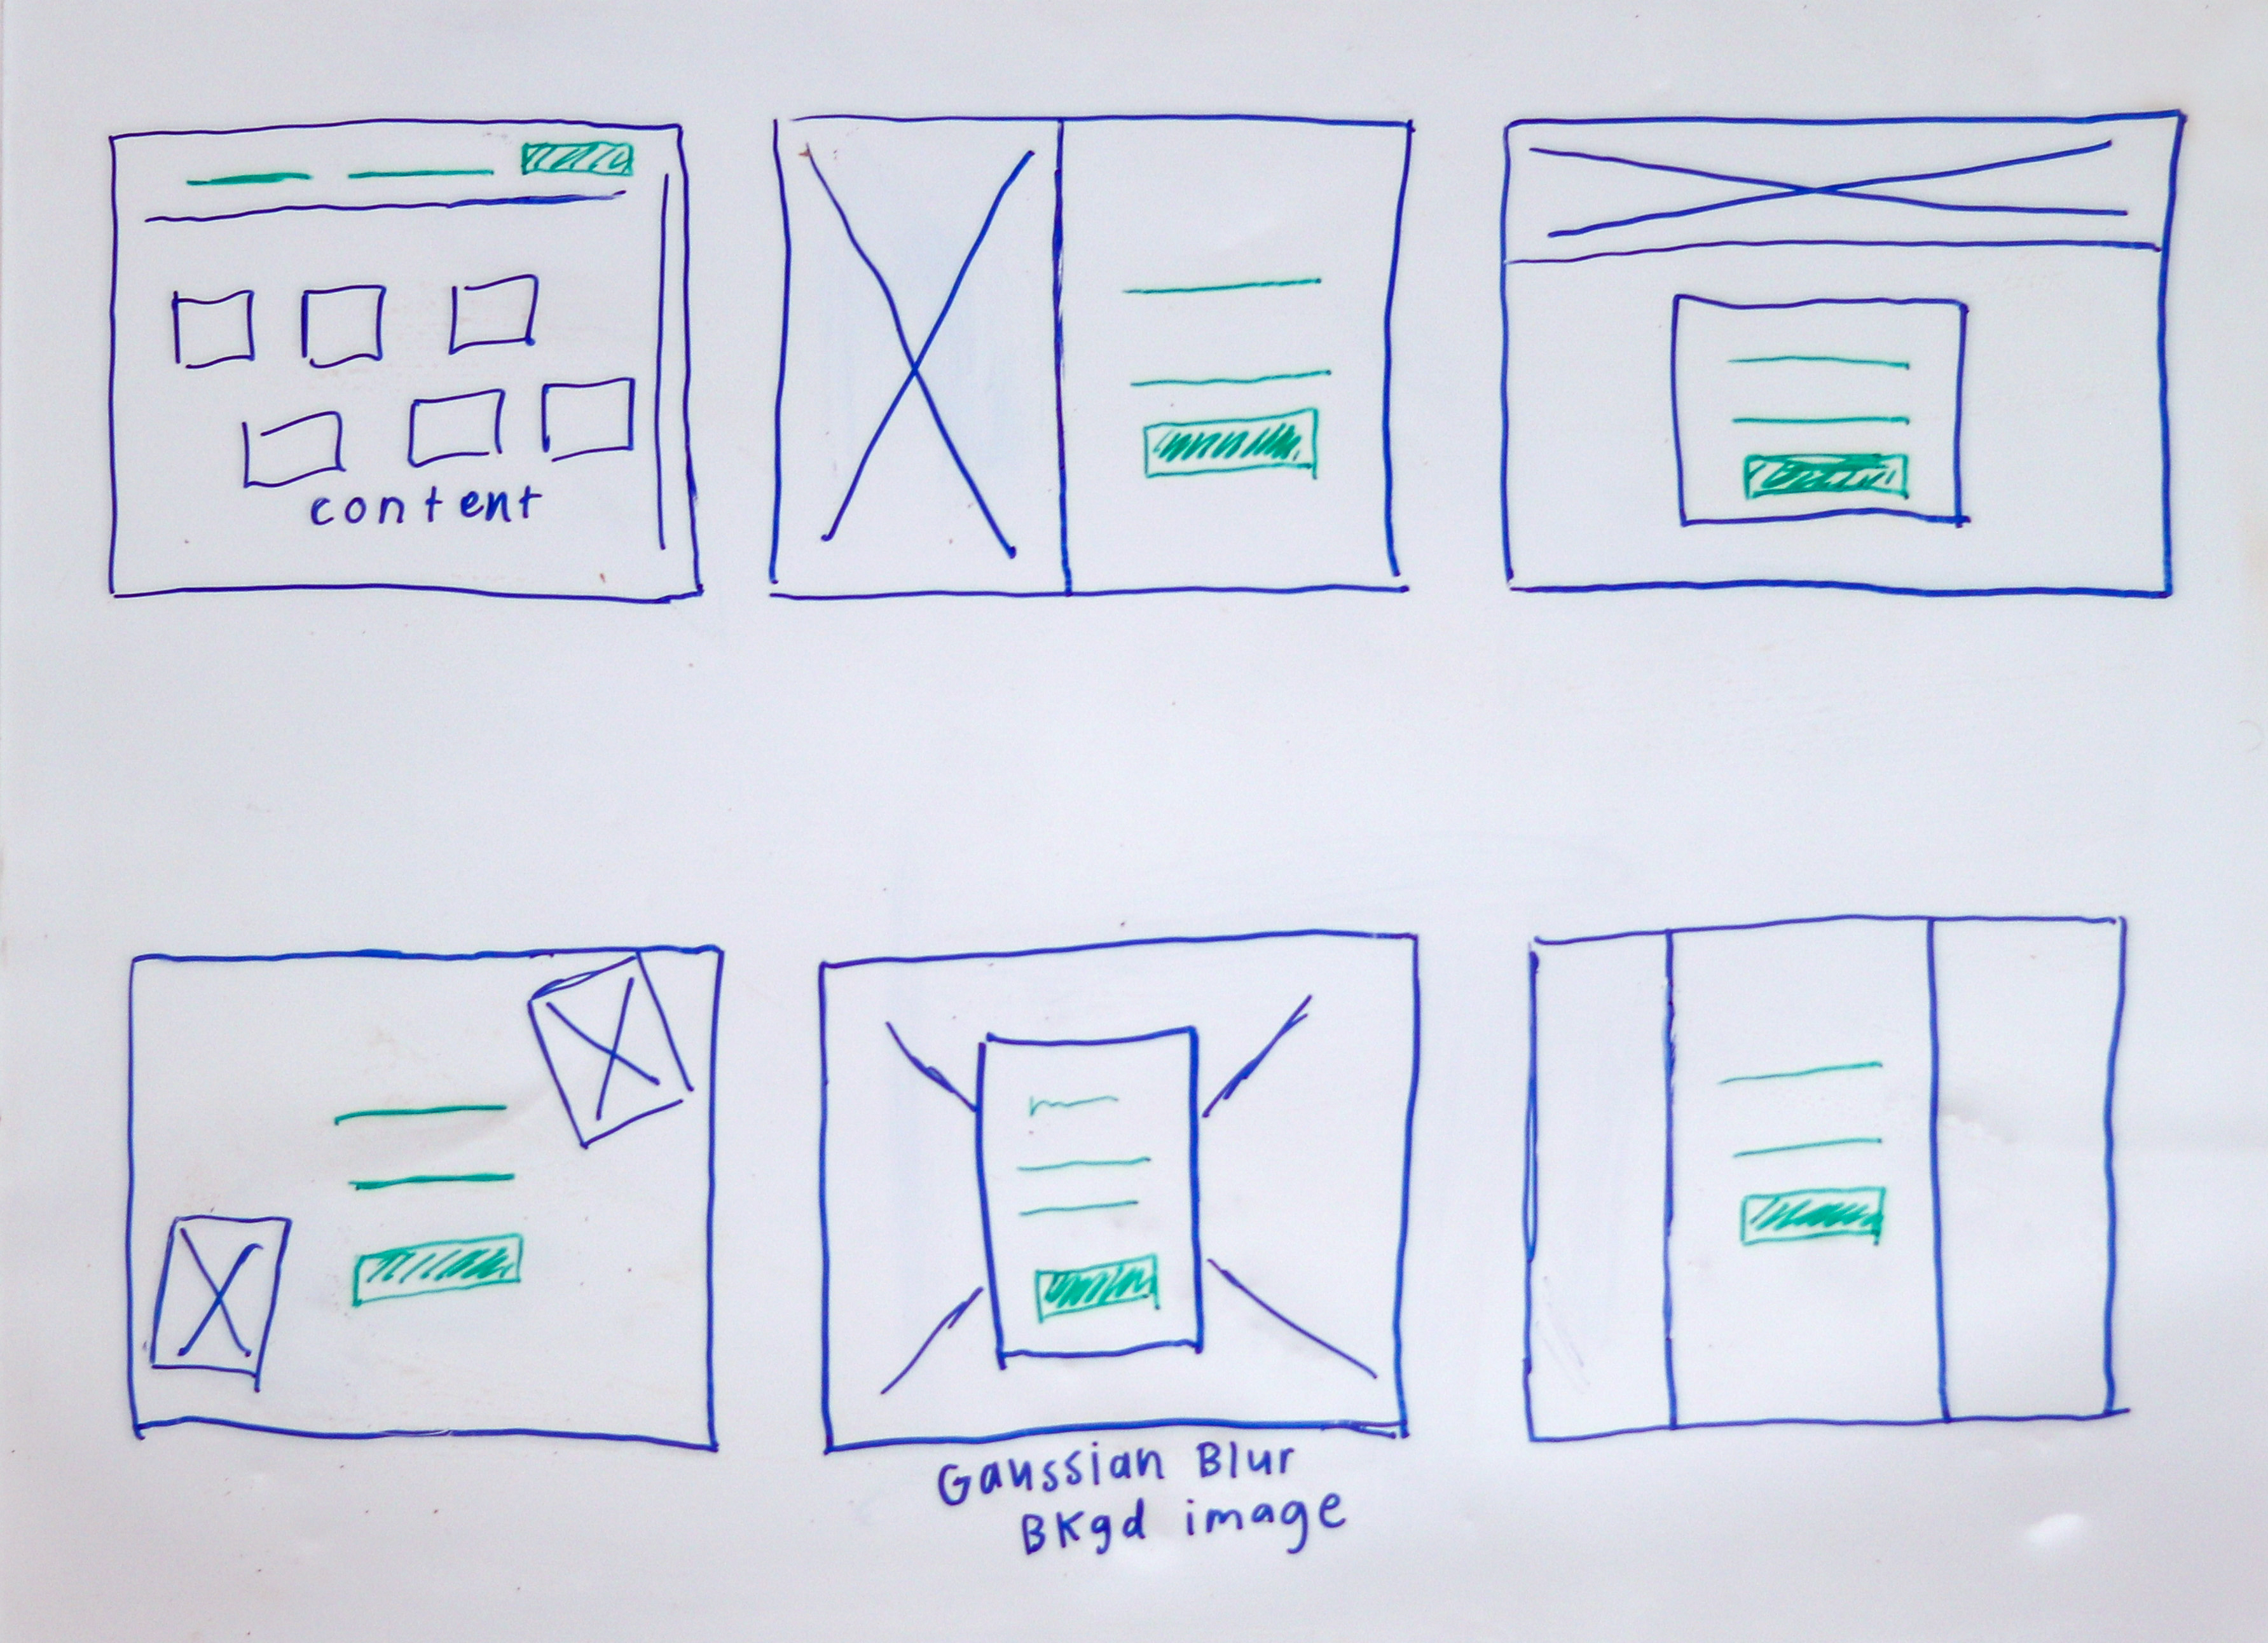 content
Gaussian Blur
BKgd image